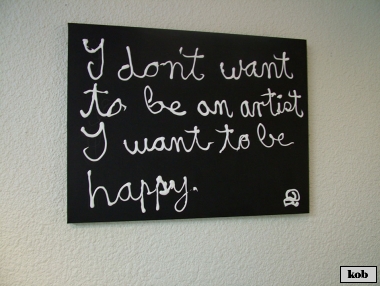 I don't want
to be an artist
I want to be
happy.
kob